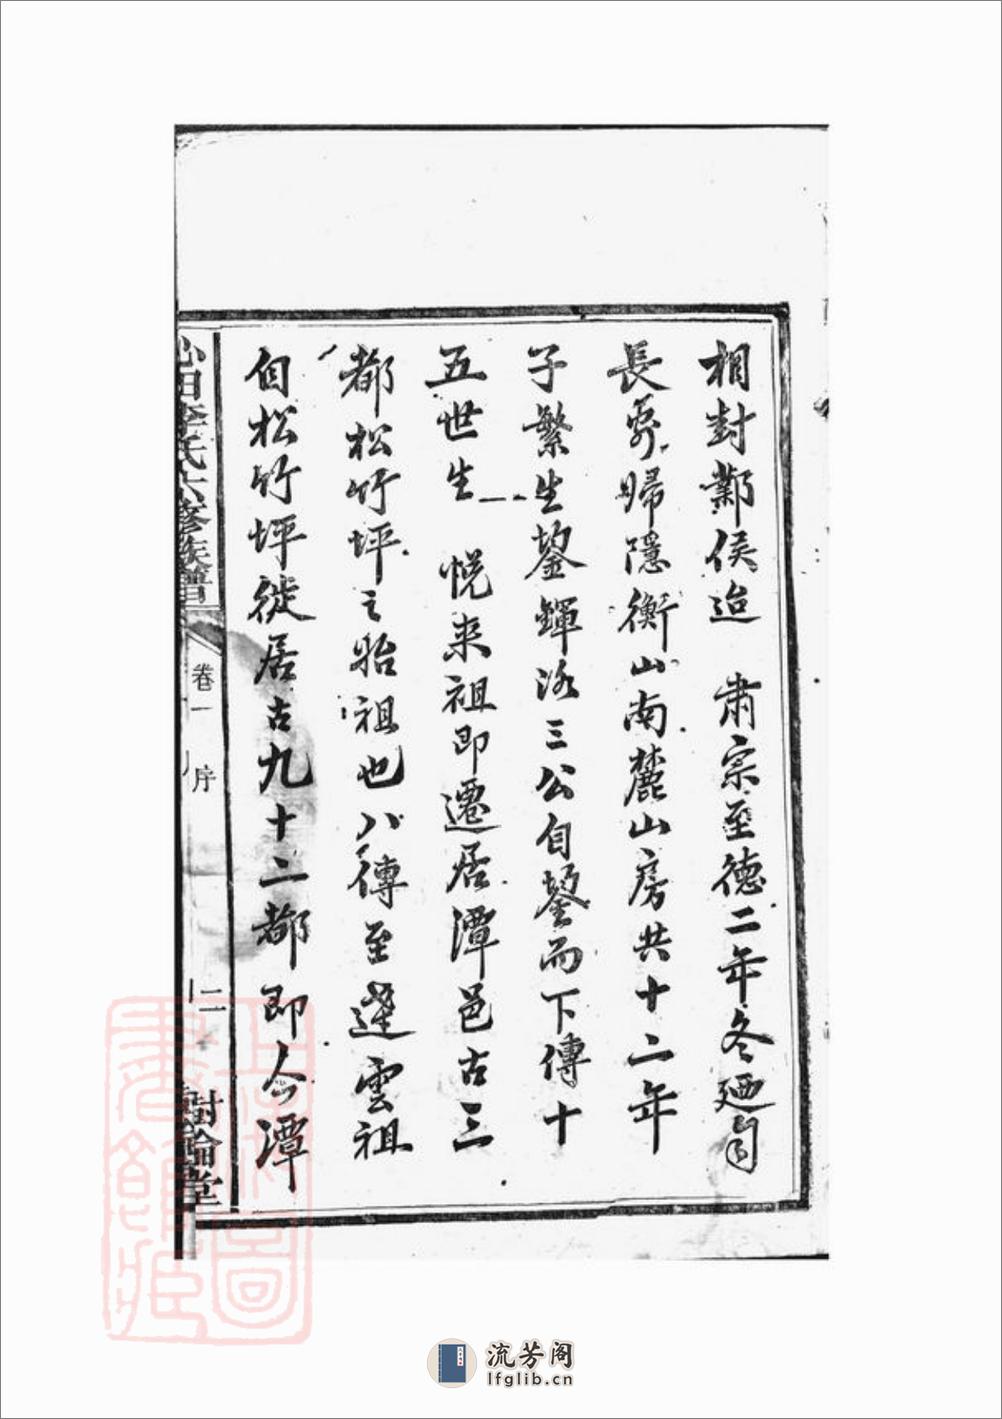 相封鄴侯迨　肅宗至德二年冬廼自
長安歸隱衡山南麓山房共十二年
子繁生鋆鏎泳三公自鋆而下傳十
五世生　悅来祖即遷居潭邑古三
都松竹坪之始祖也八傳至達雲祖
自松竹坪徙居古九十二都即今潭
李氏六修族譜
卷一　序　二
討論堂
流芳阁
lfglib.cn